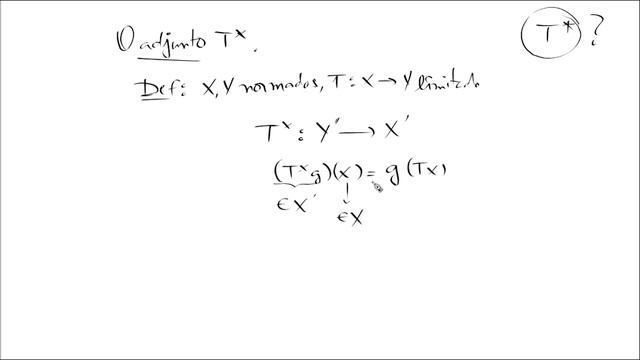 O adjunto T×.
T* ?
Def: X, Y normados, T: X → Y limitado
T×: Y' → X'
(T×g)(x) = g(Tx)
∈X' ∈X